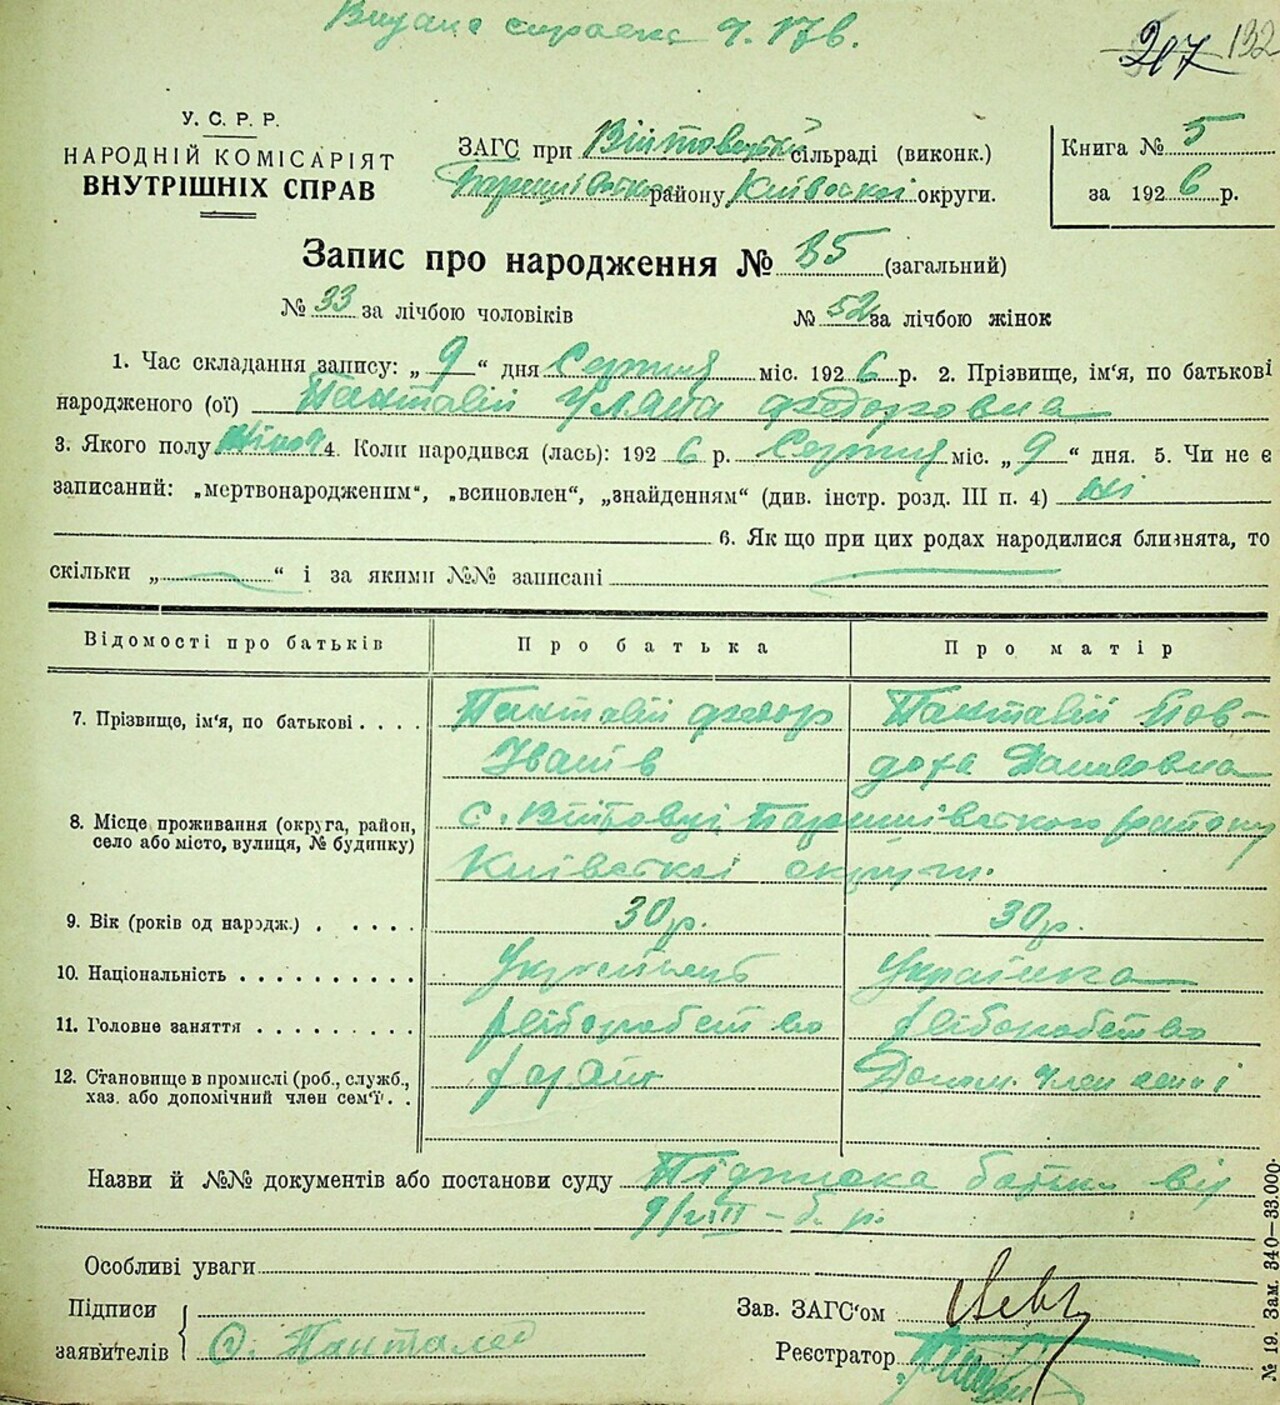 Видано справка ч. 176.
207 132
У. С. Р. Р.
НАРОДНІЙ КОМІСАРІЯТ
ВНУТРІШНІХ СПРАВ
ЗАГС при Війтовецькій сільраді (виконк.)
Баришівського району Київської округи.
Книга № 5
за 1926 р.
Запис про народження № 85 (загальний)
№ 33 за лічбою чоловіків № 52 за лічбою жінок
1. Час складання запису: „ 9 “ дня Серпня міс. 1926 р. 2. Прізвище, ім‘я, по батькові
народженого (ої) Панталій Уляна Федоровна
3. Якого полу жіноч 4. Коли народився (лась): 1926 р. Серпня міс. „ 9 “ дня. 5. Чи не є
записаний: „мертвонародженим“, „всиновлен“, „знайденням“ (див. інстр. розд. III п. 4) ні
6. Як що при цих родах народилися близнята, то
скільки „ “ і за якими №№ записані
Відомості про батьків Про батька Про матір
7. Прізвище, ім‘я, по батькові . . . . Панталій Федор Панталій Яв-
Іванів доха
8. Місце проживання (округа, район, село або місто, вулиця, № будинку) с. Війтовці Баришівського району
Київської округи.
9. Вік (років од народж.) . . . . . 30 р. 30 р.
10. Національність . . . . . . . . . . Українець Українка
11. Головне заняття . . . . . . . . . хліборобство хліборобство
12. Становище в промислі (роб., служб., хаз. або допомічний член сем‘ї . . Допом. член сем'ї
Назви й №№ документів або постанови суду Підписка батька від
9/VIII – б. р.
Особливі уваги
Підписи
заявителів Ф. Панталей
Зав. ЗАГС‘ом
Реєстратор
№ 19. Зам. 340—33.000.